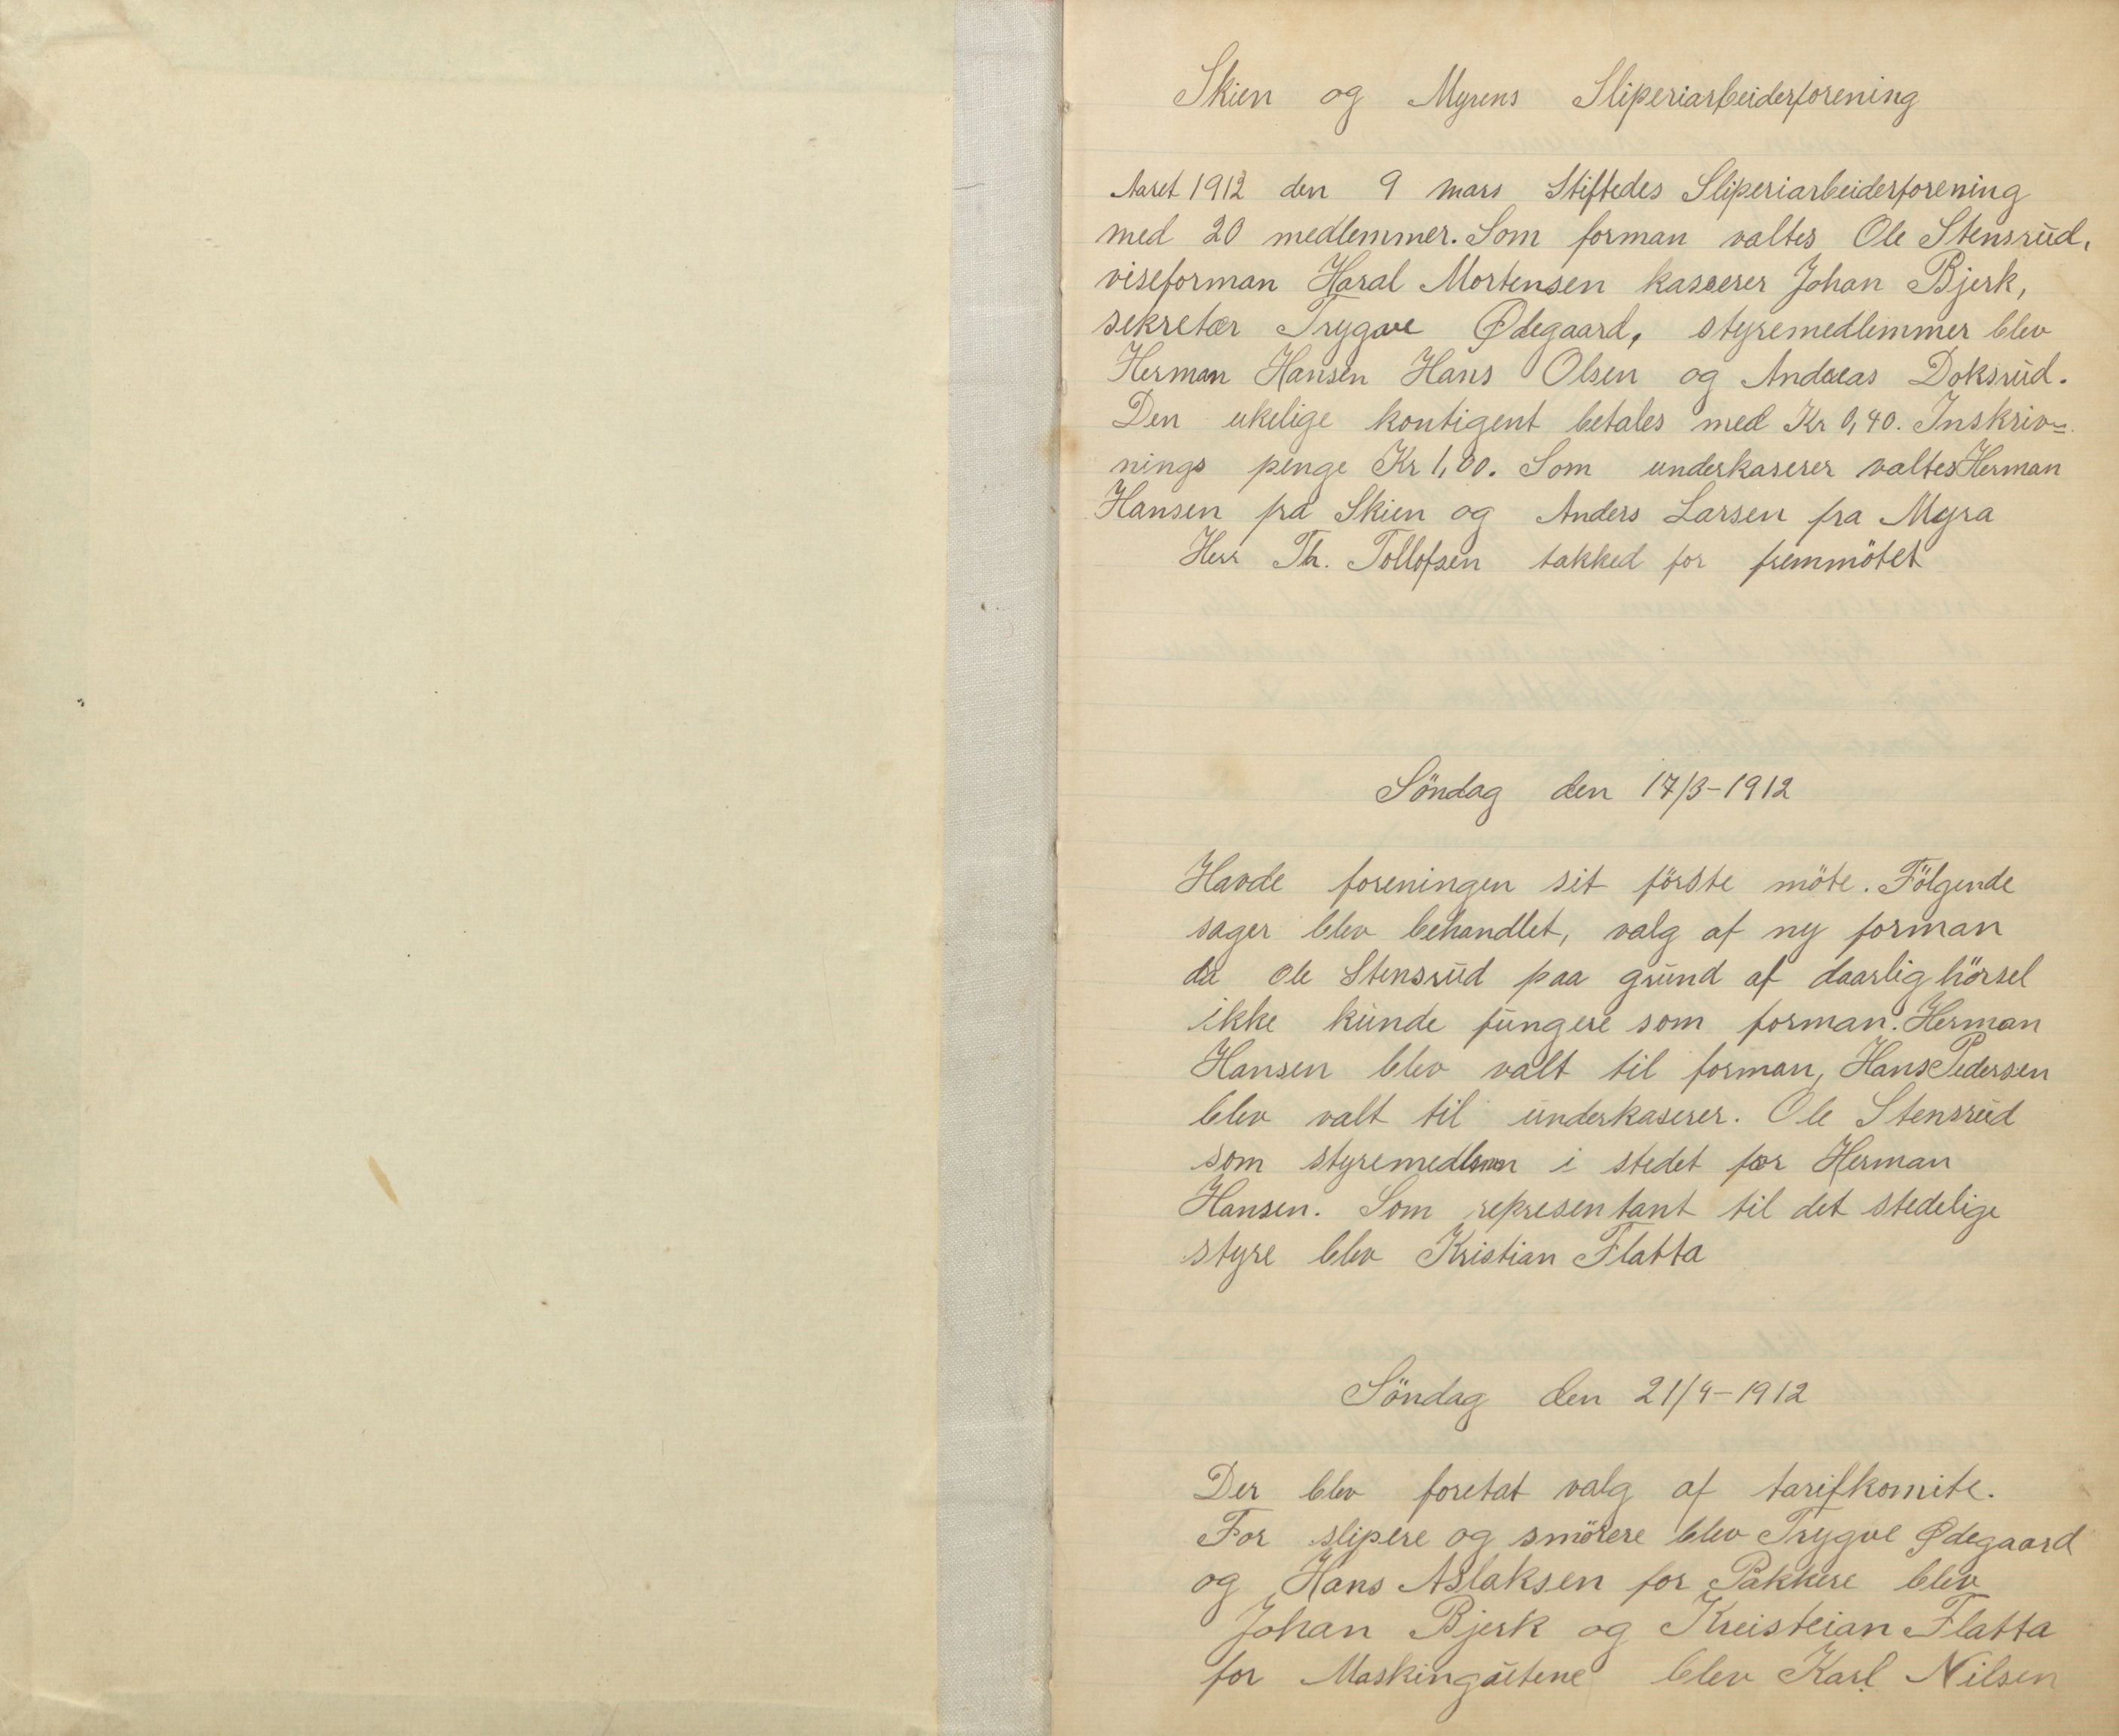 Skien og Myrens Sliperiarbeiderforening
Aaret 1912 den 9 mars Stiftedes Sliperiarbeiderforening
med 20 medlemmer. Som forman valtes Ole Stensrud,
viseforman Haral Mortensen kaserer Johan Bjerk,
sekretær Trygve Ødegaard, styremedlemmer blev
Herman Hansen Hans Olsen og Andreas Doksrud.
Den ukelige kontigent betales med Kr 0,40. Inskriv=
nings penge Kr 1,00. Som underkaserer valtes Herman
Hansen fra Skien og Anders Larsen fra Myra
Herr Th. Tollofsen takked for fremmötet
Söndag den 17/3-1912
Havde foreningen sit förste möte. Fölgende
sager blev behandlet, valg af ny forman
da Ole Stensrud paa grund af daarlig hörsel
ikke kunde fungere som forman. Herman
Hansen blev valt til forman, Hans Pedersen
blev valt til underkaserer. Ole Stensrud
som styremedlem i stedet for Herman
Hansen. Som representant til det stedelige
styre blev Kristian Flatta
Söndag den 21/4-1912
Der blev foretat valg af tarifkomite.
For slipere og smörere blev Trygve Ødegaard
og Hans Aslaksen for Pakkere blev
Johan Bjerk og Kreisteian Flatta
for Maskingutene blev Karl Nilsen